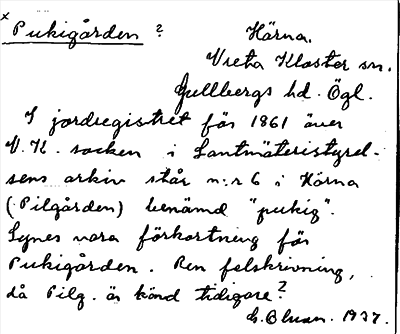 x Pukigården ? Härna.
Vreta Kloster sn.
Gullbergs hd. Ögl.
I jordregistret för 1861 över
V. K. socken i Lantmäteristyrel-
sens arkiv står n:r 6 i Härna
(Pilgården) benämd "pukig".
Synes vara förkortning för
Pukigården. Ren felskrivning,
då Pilg. är känd tidigare?
G. Bluan. 1937.